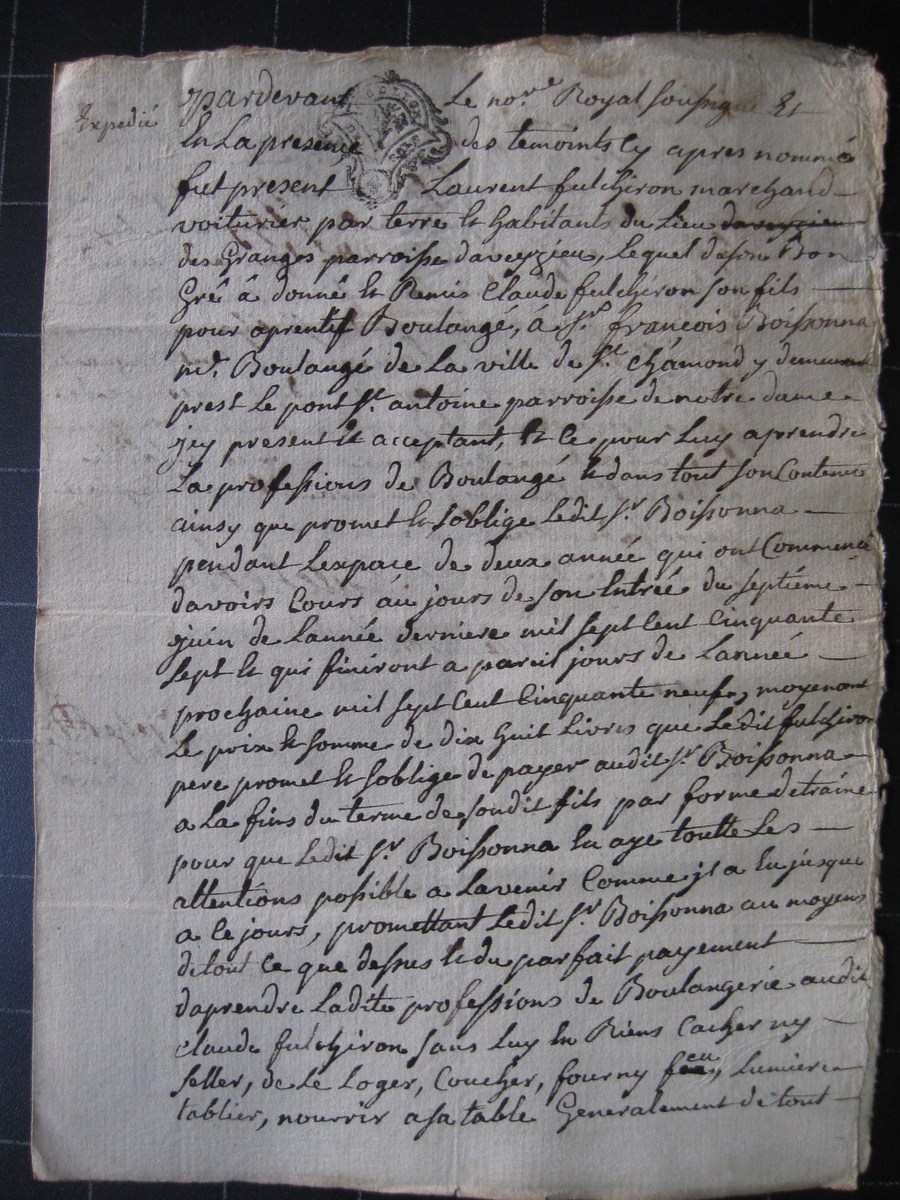 Expedié
Pardevant Le no.re Royal soussigné Et
En La presence des temoints Cy apres nommé
fut present Laurent fulchiron marchand
voiturier par terre et habitants du Lieu
des Granges parroisse daveyzieu, Lequel de son Bon
Gré â donné et Remis Claude fulchiron son fils
pour aprentif Boulangé, à Sr. françois Boissonna
md. Boulangé de La ville de St. chamond y demeurant
prest Le pont St. antoine parroisse de notre dame
jcy present et acceptant, Et ce pour Luy aprendre
La professions de Boulangé et dans tout son Contenu
ainsy que promet et soblige Ledit Sr. Boissonna
pendant Lespace de deux année qui ont Commencé
davoirs Cours au jours de son Entrée du septiéme
juin de Lannée derniere mil sept Cent Cinquante
sept et qui finiront a pareil jours de Lannée
prochaine mil sept Cent Cinquante neuf, moyenant
Le prix et somme de dix huit Livres que Ledit fulchiron
pere promet et soblige de payer audit Sr. Boissonna
a La fins du terme de sondit fils par forme detraine
pour que Ledit Sr. Boissonna En aye toutte Les
attentions possible a Lavenir Comme jl a Eu jusque
a Ce jours, promettant Ledit Sr. Boissonna au moyens
de tout Ce que dessus et du parfait payement
daprendre Ladite professions de Boulangerie audit
Claude fulchiron sans Luy En Riens Cacher ny
seller, de Le Loger, Coucher, fourny feu, Lumiere
tablier, nourrir a sa table Generalement de tout